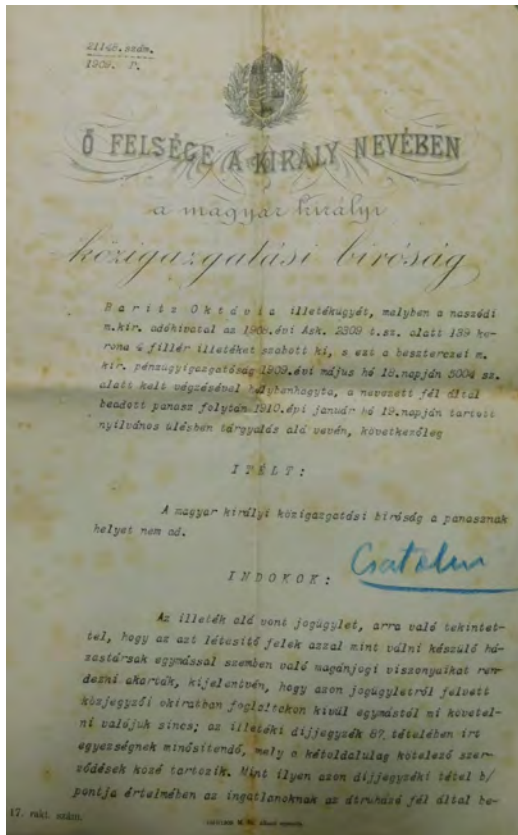 21148. szám.
1909. P.
Ő FELSÉGE A KIRÁLY NEVÉBEN
a magyar királyi
közigazgatási biróság
Baritz Oktávia illetékügyét, melyben a naszódi
m.kir. adóhivatal az 1908.évi Ask. 2309 t.sz. alatt 139 ko-
rona 4 fillér illetéket szabott ki, s ezt a beszterczei m.
kir. pénzügyigazgatóság 1909.évi május hó 18.napján 5004 sz.
alatt kelt végzésével helybenhagyta, a nevezett fél által
beadott panasz folytán 1910.évi január hó 19.napján tartott
nyilvános ülésben tárgyalás alá vevén, következőleg
ITÉLT:
A magyar királyi közigazgatási biróság a panasznak
helyet nem ad.
INDOKOK:
Az illeték alá vont jogügylet, arra való tekintet-
tel, hogy az azt létesitő felek azzal mint válni készülő há-
zastársak egymással szemben való magánjogi viszonyaikat ren-
dezni akarták, kijelentvén, hogy azon jogügyletről felvett
közjegyzői okiratban foglaltakon kivül egymástól mi követel-
ni valójuk sincs; az illetéki dijjegyzék 67.tételében irt
egyezségnek minősitendő, mely a kétoldalulag kötelező szer-
ződések közé tartozik. Mint ilyen azon dijjegyzéki tétel b/
pontja értelmében az ingatlanoknak az átruházó fél által be-
17. rakt. szám.